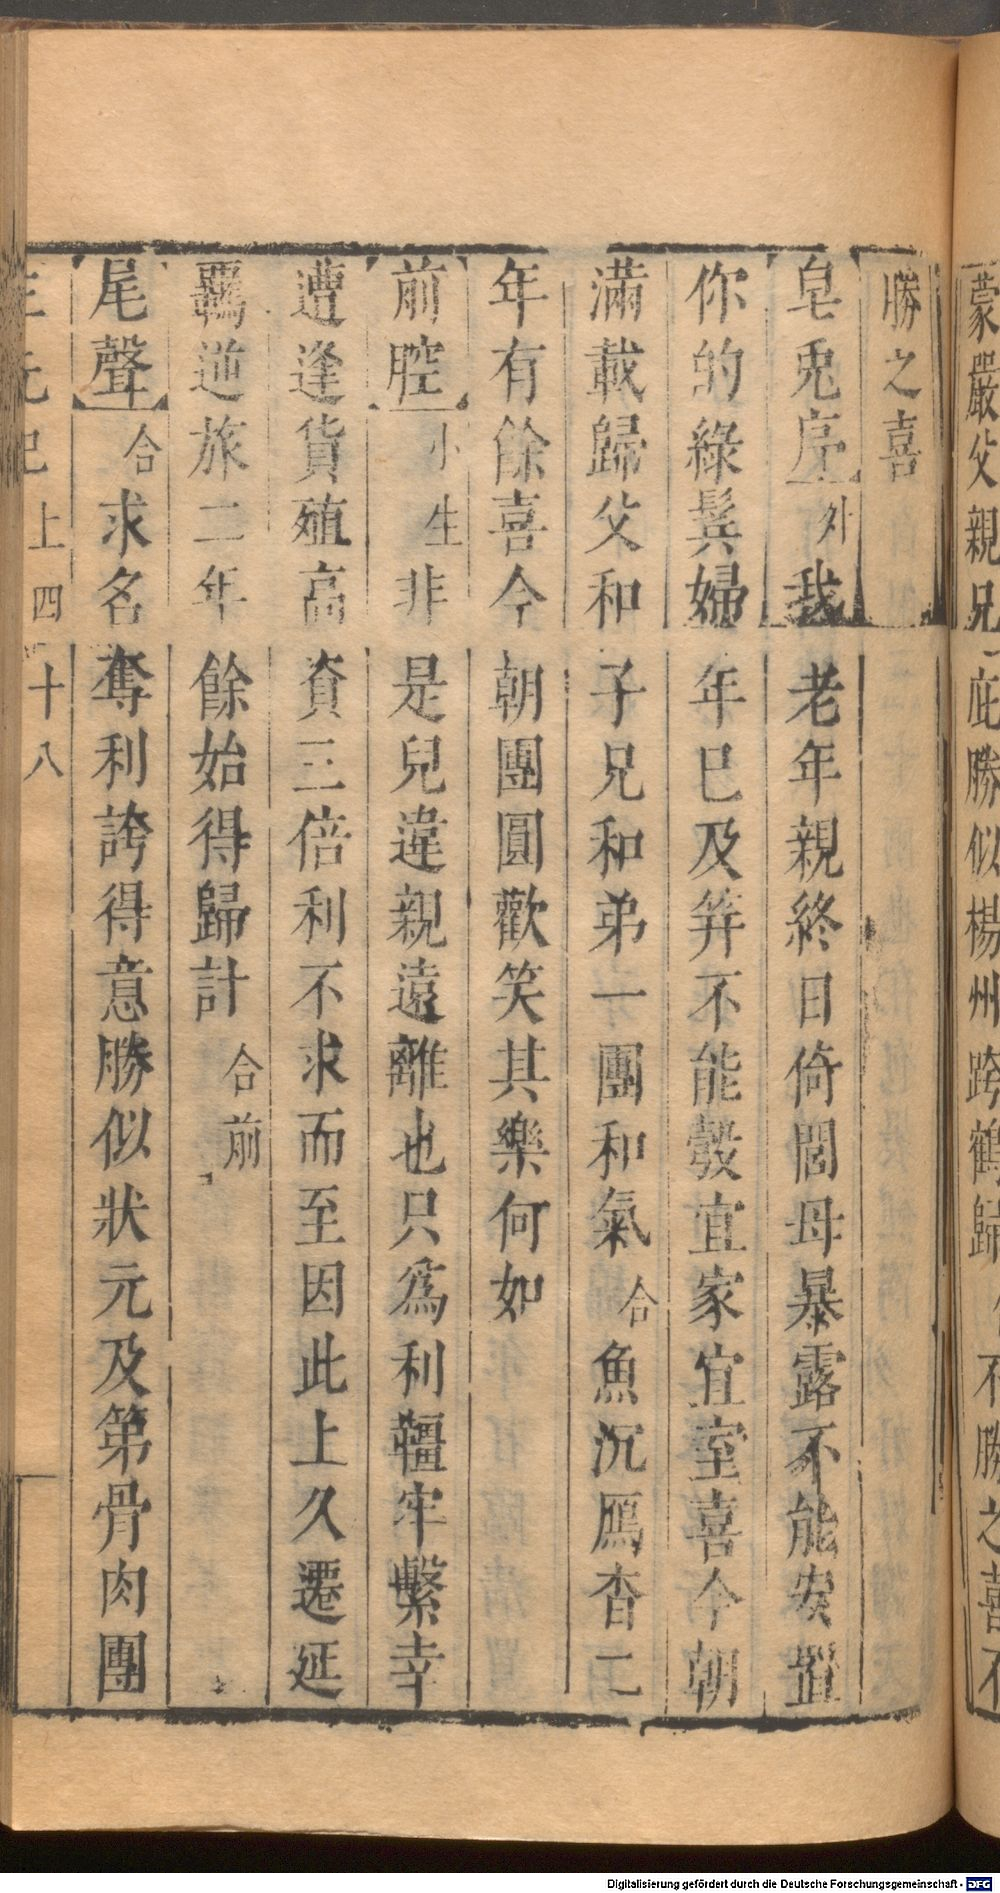 蒙嚴父親兄庇勝似楊州跨鶴歸 不勝之喜不
勝之喜
皂兎序 外 我老年親終日倚閭母暴露不能安置
你的綠鬂婦年已及笄不能彀宜家宜室喜今朝
滿載歸父和子兄和弟一團和氣 合 魚沉鴈杳二
年有餘喜今朝團圓歡笑其樂何如
前腔 小生 非是兒違親遠離也只為利韁牢繫幸
遭逢貨殖高資三倍利不求而至因此上久遷延
羈逆旅二年餘始得歸計 合前
尾聲 合 求名奪利誇得意勝似狀元及第骨肉團
三元記 上 四十八
Digitalisierung gefördert durch die Deutsche Forschungsgemeinschaft - DFG